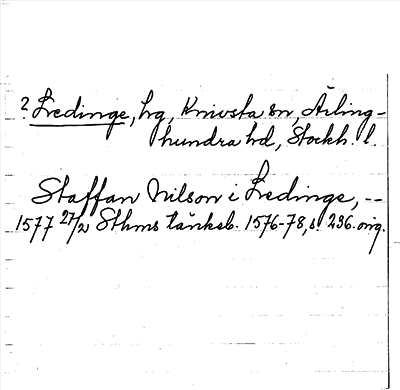 ? Lredinge, hg, Knivsta sn, Ärling-
hundra hd, Stockh. l.
Staffan Nilson i Lredinge, --
1577 27/2 Sthms tänkeb. 1576-78, s. 236. orig.